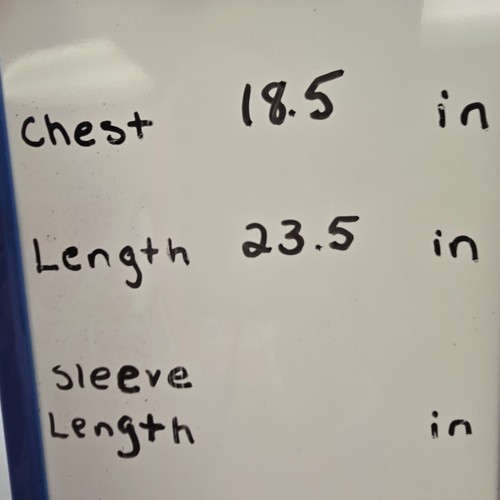 Chest 18.5 in
Length 23.5 in
Sleeve
Length in